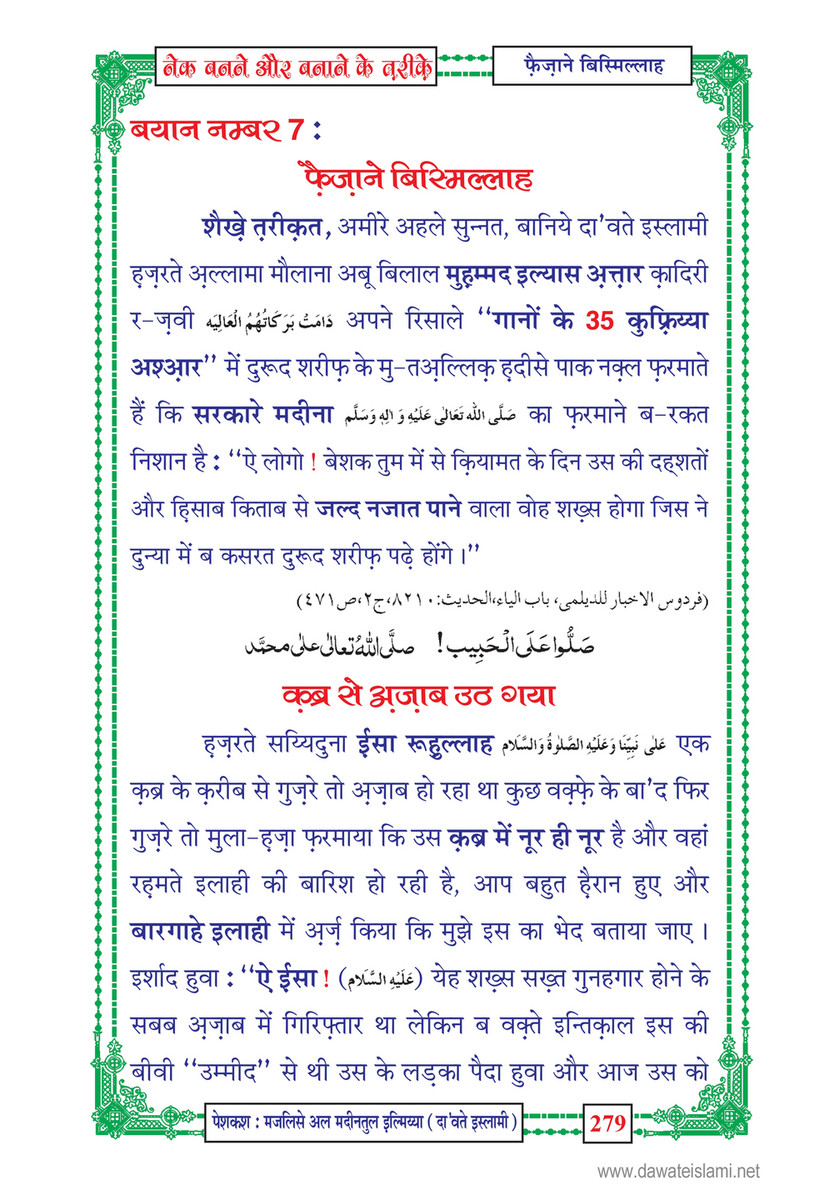 नेक बनने और बनाने के त़रीक़े
फ़ैज़ाने बिस्मिल्लाह
बयान नम्बर 7 :
फ़ैज़ाने बिस्मिल्लाह
शैख़े त़रीक़त, अमीरे अहले सुन्नत, बानिये दा'वते इस्लामी
ह़ज़रते अ़ल्लामा मौलाना अबू बिलाल मुह़म्मद इल्यास अ़त्त़ार क़ादिरी
र-ज़वी دَامَتْ بَرَكَاتُهُمُ الْعَالِيَه अपने रिसाले ‘‘गानों के 35 कुफ़्रिय्या
अश्आ़र’’ में दुरूद शरीफ़ के मु-तअ़ल्लिक़ ह़दीसे पाक नक़्ल फ़रमाते
हैं कि सरकारे मदीना صَلَّى اللّٰه تَعَالٰى عَلَيْهِ وَ اٰلِهٖ وَسَلَّم का फ़रमाने ब-रकत
निशान है : ‘‘ऐ लोगो ! बेशक तुम में से क़ियामत के दिन उस की दह्शतों
और ह़िसाब किताब से जल्द नजात पाने वाला वोह शख़्स होगा जिस ने
दुन्या में ब कसरत दुरूद शरीफ़ पढ़े होंगे ।’’
(فردوس الاخبار للديلمى، باب الياء،الحديث:٨٢١٠،ج٢،ص٤٧١)
صَلُّوا عَلَى الْحَبِيب! صلَّى اللهُ تعالٰى على محمَّد
क़ब्र से अ़ज़ाब उठ गया
ह़ज़रते सय्यिदुना ई़सा रूह़ुल्लाह عَلٰى نَبِيِّنَا وَعَلَيْهِ الصَّلٰوةُ وَالسَّلَام एक
क़ब्र के क़रीब से गुज़रे तो अ़ज़ाब हो रहा था कुछ वक़्फ़े के बा'द फिर
गुज़रे तो मुला-ह़ज़ा फ़रमाया कि उस क़ब्र में नूर ही नूर है और वहां
रह़मते इलाही की बारिश हो रही है, आप बहुत ह़ैरान हुए और
बारगाहे इलाही में अ़र्ज़ किया कि मुझे इस का भेद बताया जाए ।
इर्शाद हुवा : ‘‘ऐ ई़सा ! (عَلَيْهِ السَّلَام) येह शख़्स सख़्त गुनहगार होने के
सबब अ़ज़ाब में गिरिफ़्तार था लेकिन ब वक़्ते इन्तिक़ाल इस की
बीवी ‘‘उम्मीद’’ से थी उस के लड़का पैदा हुवा और आज उस को
पेशकश : मजलिसे अल मदीनतुल इ़ल्मिय्या ( दा'वते इस्लामी )
279
www.dawateislami.net